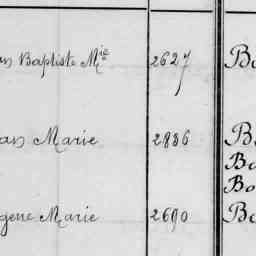 an Baptiste Mie 2627 Bo
an Marie 2886 B
Bo
Bo
gene Marie 2690 Bo